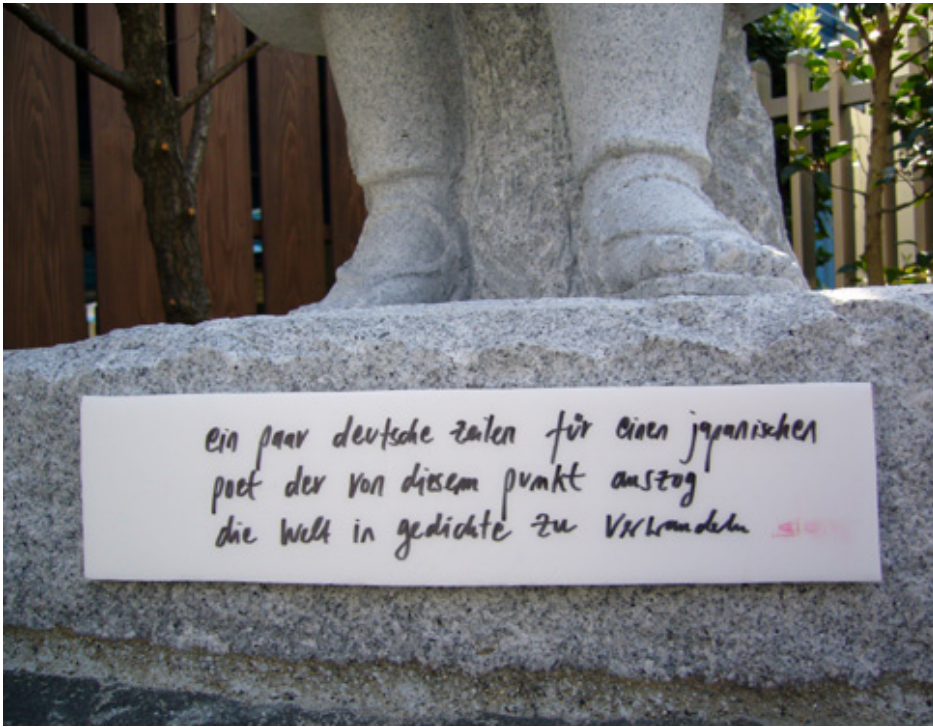 ein paar deutsche zeilen für einen japanischen
poet der von diesem punkt auszog
die Welt in gedichte zu verwandeln